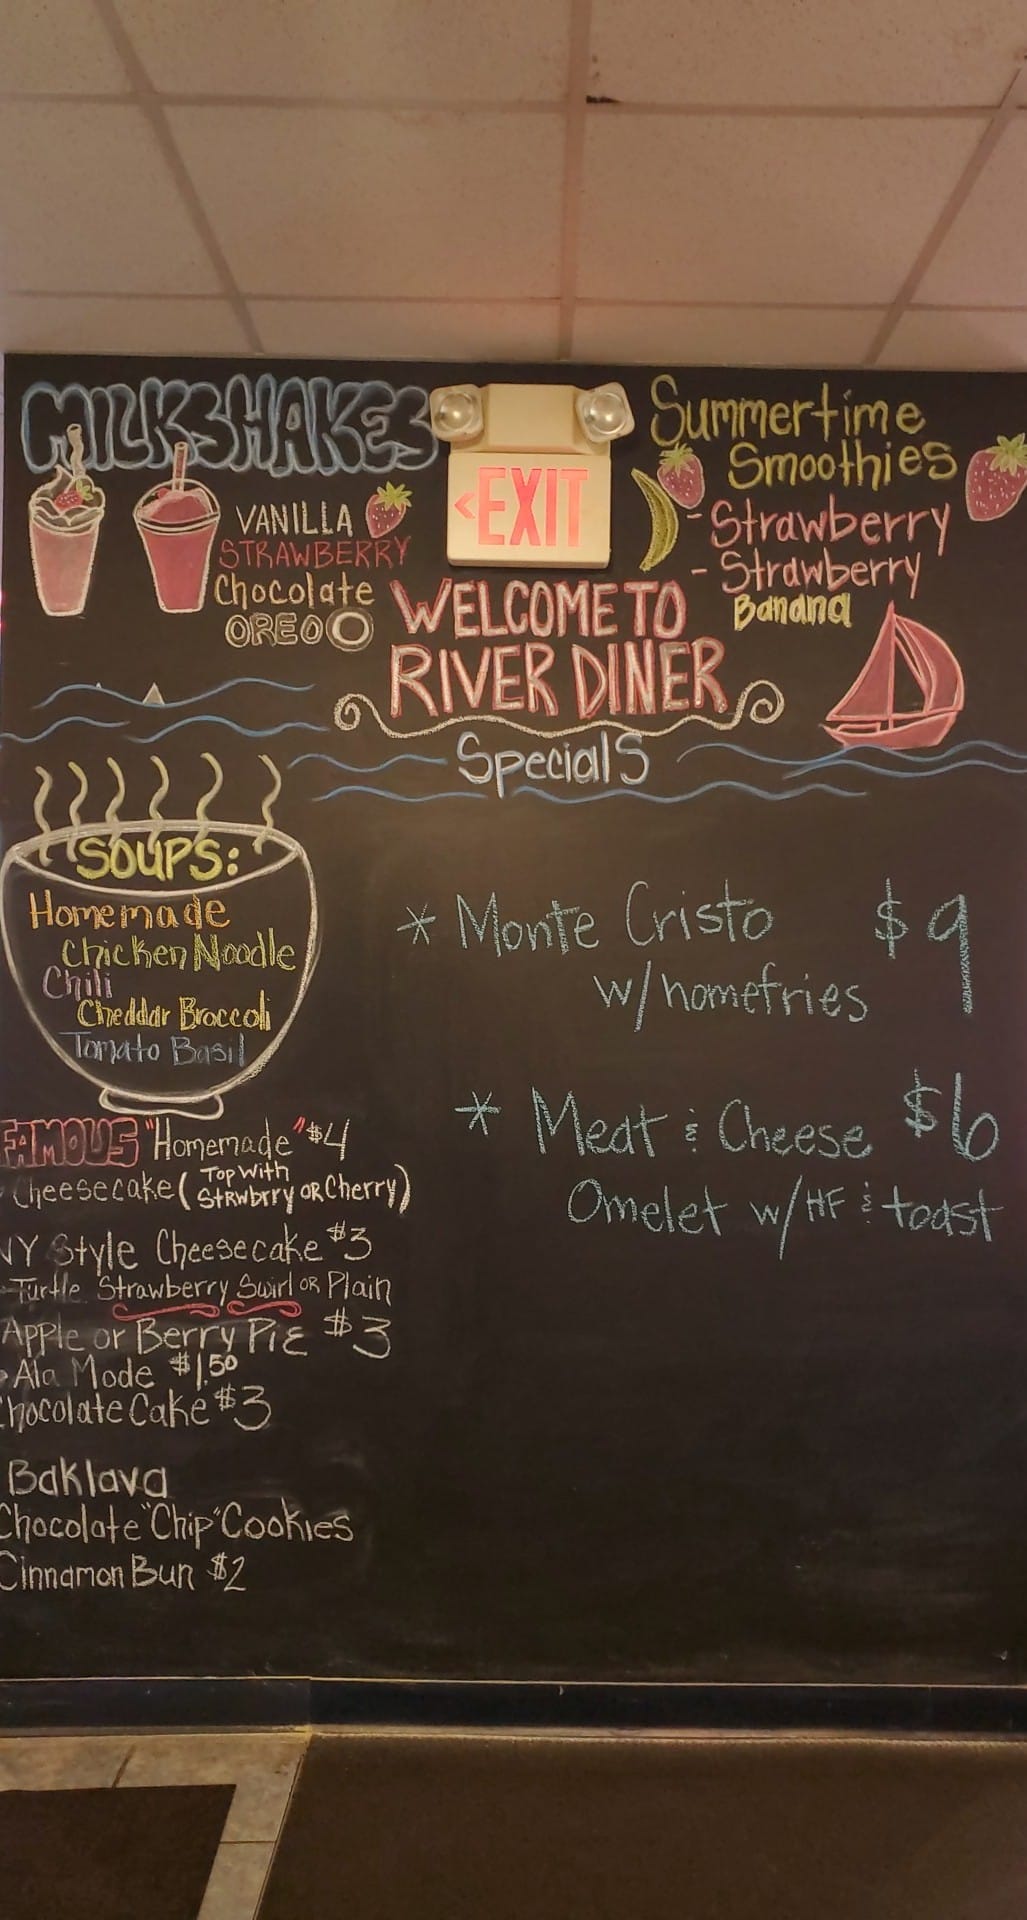 MILKSHAKES
VANILLA
STRAWBERRY
Chocolate
OREO
<EXIT
Summertime
Smoothies
- Strawberry
- Strawberry
Banana
WELCOME TO
RIVER DINER
Specials
SOUPS:
Homemade
Chicken Noodle
Chili
Cheddar Broccoli
Tomato Basil
FAMOUS "Homemade" $4
Cheesecake (Top With
Strwbrry or Cherry)
NY Style Cheesecake $3
Turtle Strawberry Swirl or Plain
Apple or Berry Pie $3
Ala Mode $1.50
Chocolate Cake $3
Baklava
Chocolate "Chip" Cookies
Cinnamon Bun $2
* Monte Cristo $9
w/homefries
* Meat & Cheese $6
Omelet w/HF & toast